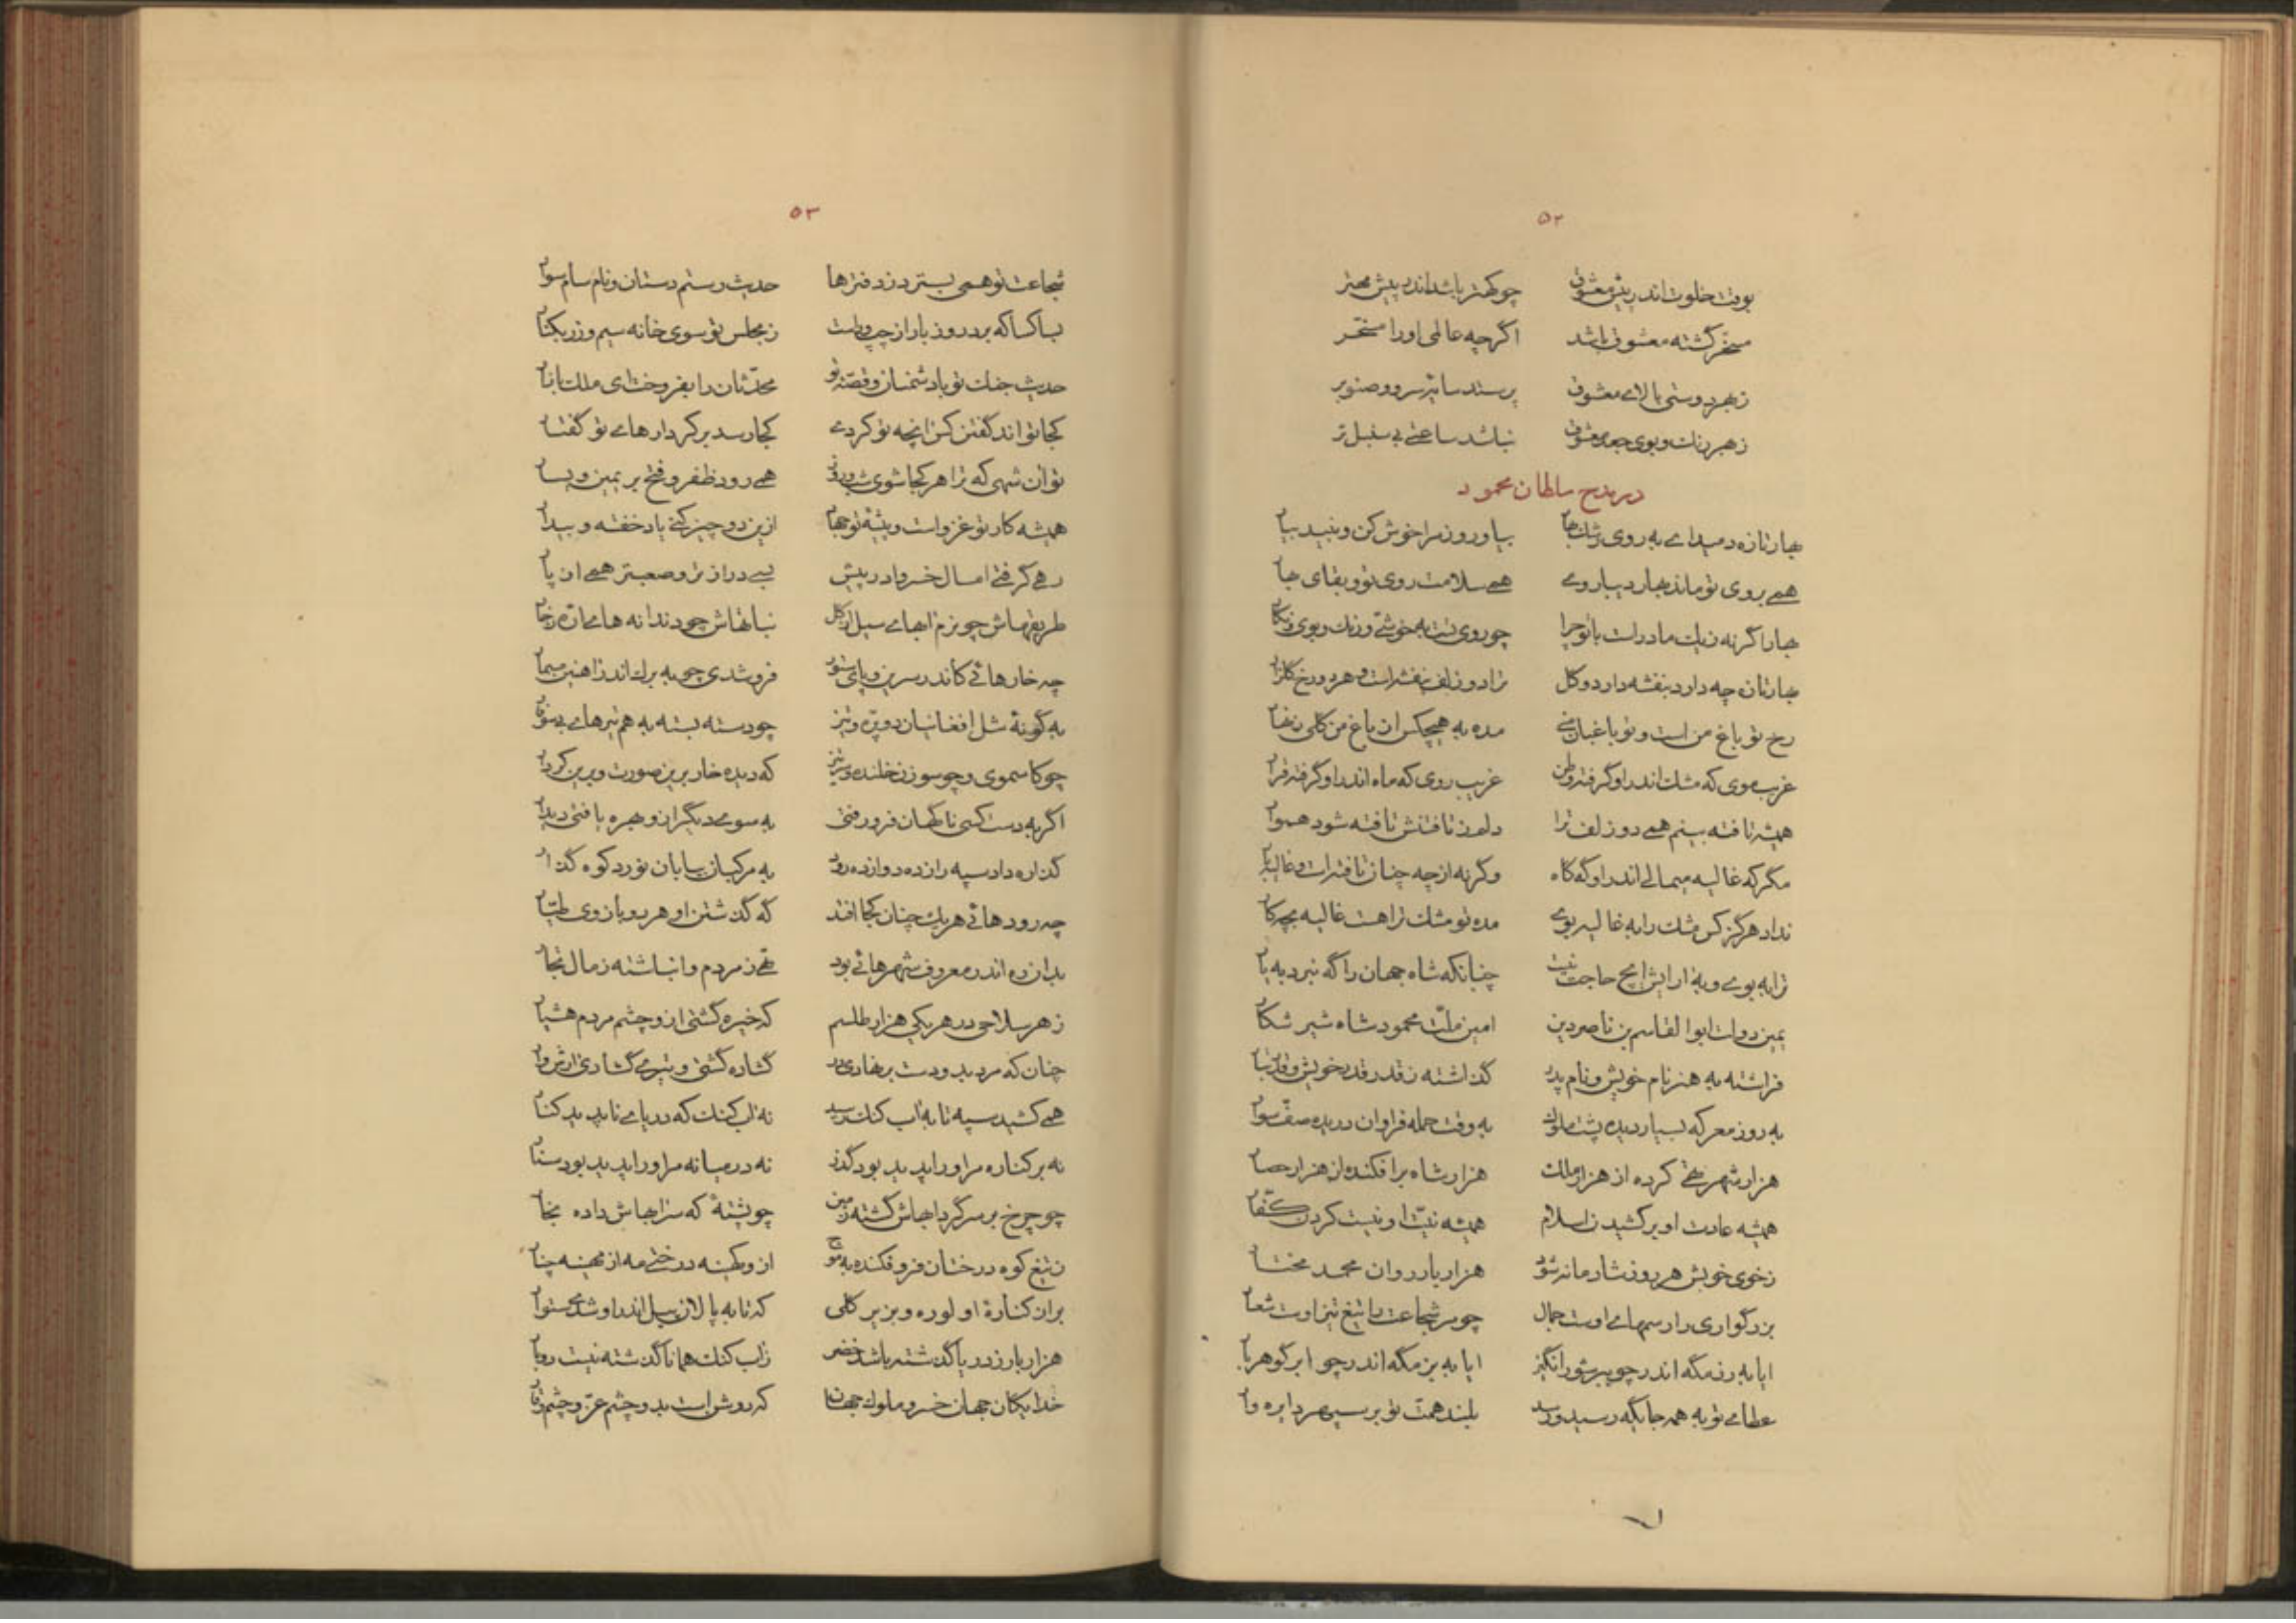 ۵۲
بوقت خلوت اندر پیش معشوق چو کهتر باشد اندر پیش مهتر
مسخر گشته معشوق باشد اگرچه عالمی او را مسخّر
ز بهر دوستی بالای معشوق پرستد سایه سرو و صنوبر
ز بهر رنگ و بوی جعد معشوق نباشد ساعتی بی سنبل تر
در مدح سلطان محمود
بهار تازه دمید ای به روی رشک بهار بیا و روز مرا خوش کن و نبید بیار
همی به روی تو ماند بهار دیباروی همی سلامت روی تو و بقای بهار
بهار اگر نه ز یک مادر است با تو چرا چو روی تست به خوشی و رنگ و بوی و نگار
بهار تازه چه دارد بنفشه دارد و گل ترا دو زلف بنفشه است و هر دو رخ گلزار
رخ تو باغ من است و تو باغبان منی مده به هیچکس از باغ من گلی زنهار
غریب موی که مشک اندر او گرفته وطن غریب روی که ماه اندر او گرفته قرار
همیشه تافته بینم همی دو زلف ترا دلم ز تافتنش تافته شود هموار
مگر که غالیه میمالی اندر او گه گاه وگرنه از چه چنان تافته است و غالیه بار
نداد هرگز کس مشک را به غالیه بوی مده تو مشک ترا هست غالیه بچه کار
ترا به بوی و به آرایش ایچ حاجت نیست چنانکه شاه جهان را گه نبرد به یار
یمین دولت ابوالقاسم بن ناصر دین امین ملّت محمود شاه شیر شکار
فراشته به هنر نام خویش و نام پدر گذاشته ز قدر قدر خویش و قدر تبار
به روز معرکه بسیار دیده پشت ملوک به وقت حمله فراوان دریده صف سوار
هزار شهر تهی کرده از هزار ملک هزار شاه برافکنده از هزار حصار
همیشه عادت او برکشیدن اسلام همیشه نیّت او نیست کردن کفّار
ز خوی خویش هر روز شادمانه شود هزار بار روان محمد مختار
بزرگواری را رسمهای اوست جمال چو مر شجاعت را تیغ تیز اوست شعار
ایا به رزمگه اندر چو ببر شورانگیز ایا به بزمگه اندر چو ابر گوهربار
عطای تو به همه جایگه رسید و رسد بلند همت تو بر سپهر دایره وار
۵۳
شجاعت تو همی بسترد ز دفترها حدیث رستم دستان و نام سام سوار
بسا کسا که برد روز بار از چپ و راست ز مجلس تو سوی خانه سیم و زر بکنار
حدیث جنگ تو با دشمنان و قصّه تو محدّثان را بفروخت ای ملک بازار
کجا تواند گفتن کس آنچه تو کردی کجا رسد بر کردارهای تو گفتار
تو آن شهی که ترا هر کجا شوی شب و روز همی رود ظفر و فتح بر یمین و یسار
همیشه کار تو غزو است و پیشه تو جهاد ازین دو چیز کنی یاد خفته و بیدار
رهی گرفتی امسال خسروا در پیش بسی درازتر و صعبتر همی از پار
طریقهاش چو بزم آبهای سیل از گل نباتهاش چو دندانه های ارّه ز خار
چه خارهائی کاندر سرین و پای ستور فرو شدی چو به برگ اندر آهنین مسمار
به گونه شل افغانیان دو پرّه و تیز چو دسته بسته به هم تیرهای بی سوفار
چو کاسموی و چو سوزن خلنده و سر تیز که دیده خار برین صورت و برین کردار
اگر به دست کسی ناگهان فرو رفتی به سوی دیگر از او بهره یافتی دیدار
گذاره داد سپه را از ده دوازده رود به مرکبان بیابان نورد کوه گذار
چه رودهائی هر یک چنان کجا افتد گه گذشتن او هر دو بازوی طیّار
بدان ره اندر معروف شهرهائی بود تهی ز مردم و انباشته ز مال تجار
ز هر سلاحی در هر یکی هزار طلسم که خیره گشتی از او چشم مردم هشیار
همی کشید سپه تا به آب گنگ رسید نه آب گنگ که دریای ناپدید کنار
نه بر کناره مر او را پدید بود گذر نه در میانه مر او را پدید بود سنار
چو چرخ بر سر گردابهاش گشته زمین چو پشته که سرابهاش داده بخار
ز تیغ کوه درختان فرو فکنده به موج از او کهینه درختی مه از مهینه چنار
بر آن کناره او لوره و بزیر کلی که تا به پالان پیل اندر او شدی ستوار
هزار بار ز دریا گذشته باشد خضر ز آب گنگ همانا گذشته نیست دو بار
خدایگان جهان خسرو ملوک جهان که روشن است بدو چشم عزّ و چشم وقار